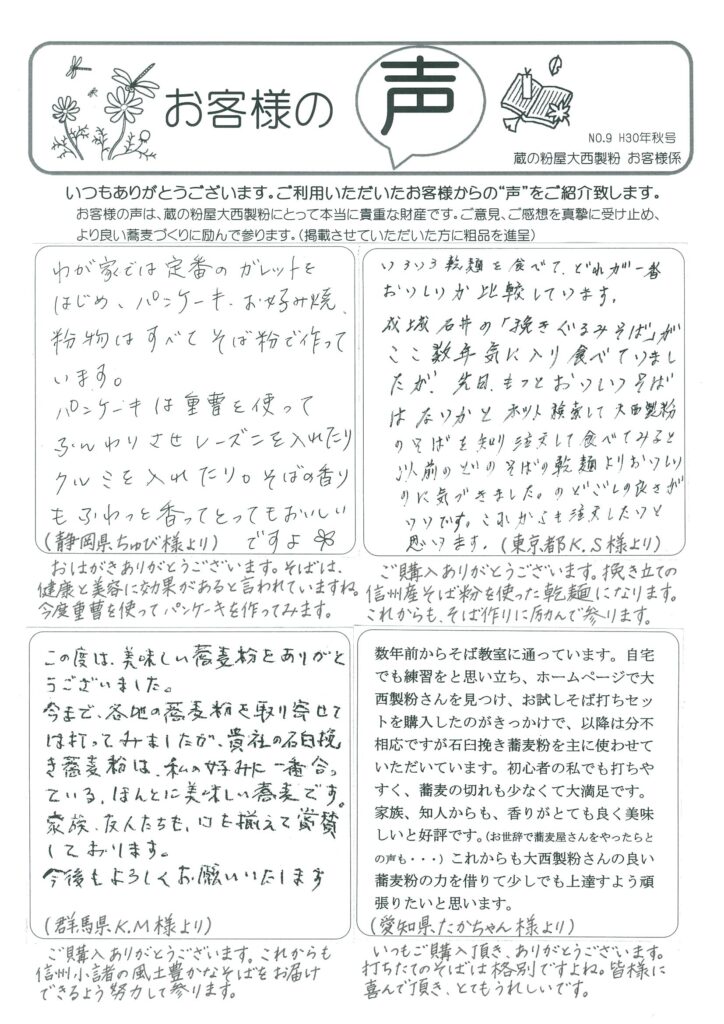 お客様の声
NO.9 H30年秋号
蔵の粉屋大西製粉 お客様係
いつもありがとうございます。ご利用いただいたお客様からの“声”をご紹介致します。
お客様の声は、蔵の粉屋大西製粉にとって本当に貴重な財産です。ご意見、ご感想を真摯に受け止め、
より良い蕎麦づくりに励んで参ります。（掲載させていただいた方に粗品を進呈）
わが家では定番のガレットを
はじめ、パンケーキ、お好み焼、
粉物はすべてそば粉で作って
います。
パンケーキは重曹を使って
ふんわりさせレーズンを入れたり
クルミを入れたり。そばの香り
もふわっと香ってとってもおいしい
ですよ
（静岡県ちゅび様より）
おはがきありがとうございます。そばは、
健康と美容に効果があると言われていますね。
今度重曹を使ってパンケーキを作ってみます。
いろいろ乾麺を食べて、どれが一番
おいしいか比較しています。
成城石井の「挽きぐるみそば」が
ここ数年気に入り食べていまし
たが、先日、もっとおいしいそば
はないかとネット検索して大西製粉
のそばを知り注文して食べてみると
以前のどのそばの乾麺よりおいしい
のに気づきました。のどごしの良さが
いいです。これからも注文したいと
思います。（東京都K.S様より）
ご購入ありがとうございます。挽き立ての
信州産そば粉を使った乾麺になります。
これからも、そば作りに励んで参ります。
この度は、美味しい蕎麦粉をありがと
うございました。
今まで、各地の蕎麦粉を取り寄せて
は打ってみましたが、貴社の石臼挽
き蕎麦粉は、私の好みに一番合っ
ている、ほんとに美味しい蕎麦です。
家族、友人たちも、口を揃えて賞賛
しております。
今後もよろしくお願いいたします
（群馬県K.M様より）
ご購入ありがとうございます。これからも
信州小諸の風土豊かなそばをお届け
できるよう努力して参ります。
数年前からそば教室に通っています。自宅
でも練習をと思い立ち、ホームページで大
西製粉さんを見つけ、お試しそば打ちセッ
トを購入したのがきっかけで、以降は分不
相応ですが石臼挽き蕎麦粉を主に使わせて
いただいています。初心者の私でも打ちや
すく、蕎麦の切れも少なくて大満足です。
家族、知人からも、香りがとても良く美味
しいと好評です。（お世辞で蕎麦屋さんをやったらと
の声も・・・）これからも大西製粉さんの良い
蕎麦粉の力を借りて少しでも上達すよう頑
張りたいと思います。
（愛知県たかちゃん様より）
いつもご購入頂き、ありがとうございます。
打ちたてのそばは格別ですよね。皆様に
喜んで頂き、とてもうれしいです。